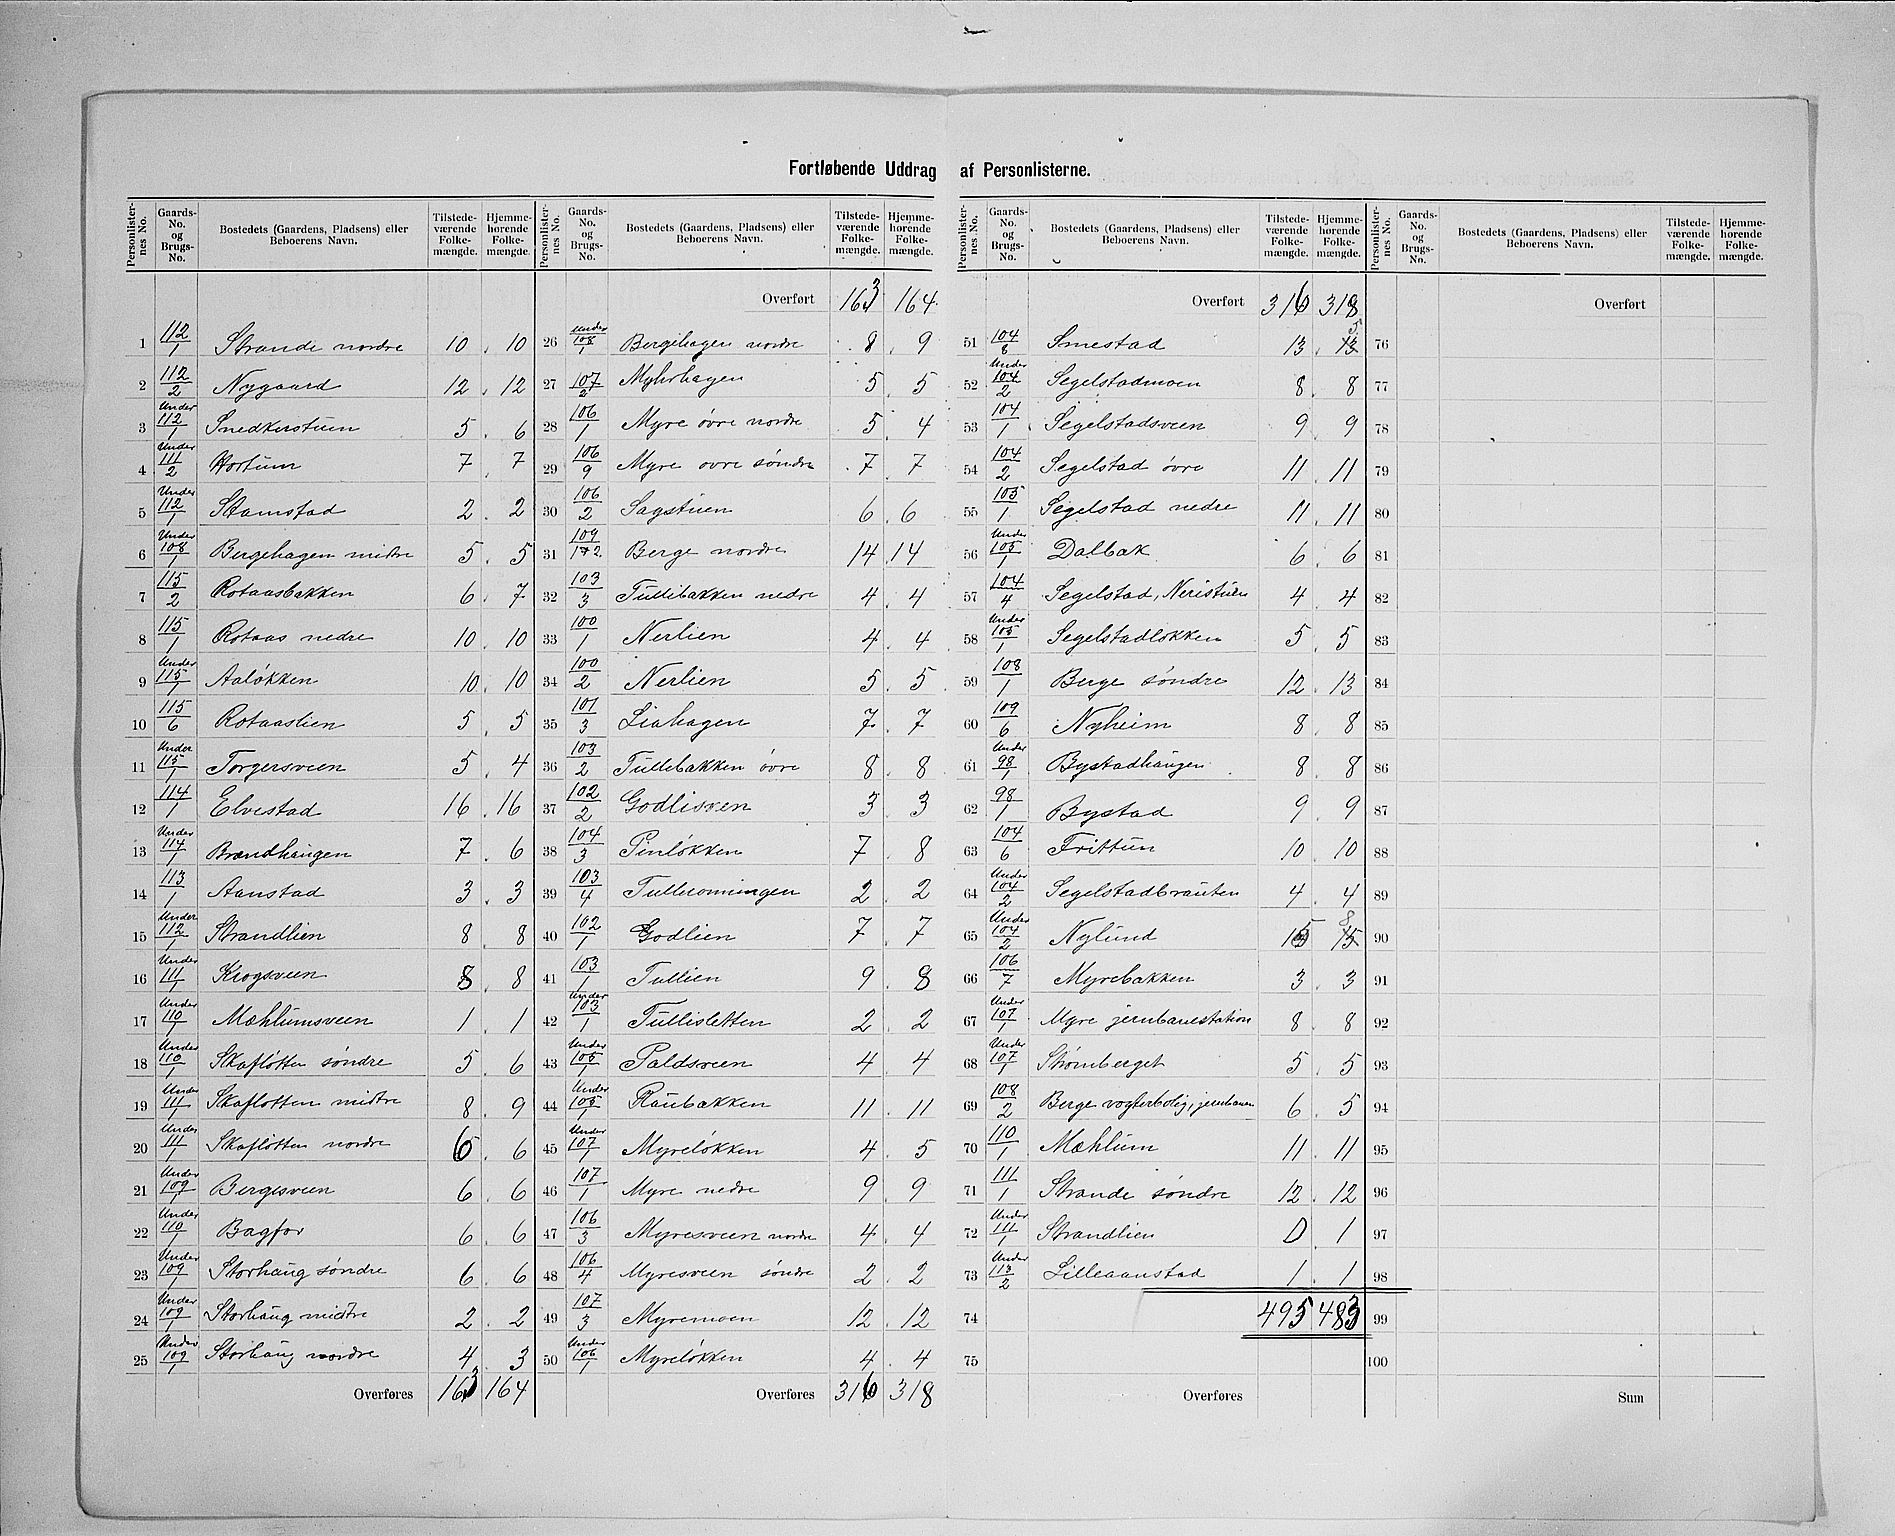 Fortløbende Uddrag af Personlisterne.
Personlisternes No. Gaards-No. og Brugs-No. Bostedets (Gaardens, Pladsens) eller Beboerens Navn. Tilstedeværende Folkemængde. Hjemmehørende Folkemængde.
1 112/1 Strande nordre 10 10
2 112/2 Nygaard 12 12
3 Under 112/1 Snedkerstuen 5 6
4 Under 111/2 Hortum 7 7
5 Under 112/1 Stamstad 2 2
6 Under 108/1 Bergehagen midtre 5 5
7 115/2 Rotaasbakken 6 7
8 115/1 Rotaas nedre 10 10
9 Under 115/1 Aaløkken 10 10
10 115/6 Rotaaslien 5 5
11 Under 115/1 Torgersveen 5 4
12 114/1 Elvestad 16 16
13 Under 114/1 Brændhaugen 7 6
14 113/1 Aanstad 3 3
15 Under 112/1 Strandlien 8 8
16 Under 111/1 Krogsveen 8 8
17 Under 110/1 Mæhlumsveen 1 1
18 Under 110/1 Skafløtten søndre 5 6
19 Under 111/1 Skafløtten midtre 8 9
20 Under 111/1 Skafløtten nordre 6 6
21 Under 109/1 Bergesveen 6 6
22 Under 110/1 Bagfor 6 6
23 Under 109/1 Storhaug søndre 6 6
24 Under 109/1 Storhaug midtre 2 2
25 Under 109/1 Storhaug nordre 4 3
Overføres 163 164
Personlisternes No. Gaards-No. og Brugs-No. Bostedets (Gaardens, Pladsens) eller Beboerens Navn. Tilstedeværende Folkemængde. Hjemmehørende Folkemængde.
Overført 163 164
26 Under 108/1 Bergehagen nordre 8 9
27 107/2 Myhrhagen 5 5
28 106/1 Myre øvre nordre 5 4
29 106/9 Myre øvre søndre 7 7
30 106/2 Sagstuen 6 6
31 109/1+2 Berge nordre 14 14
32 103/3 Tullibakken nedre 4 4
33 100/1 Nerlien 4 4
34 100/2 Nerlien 5 5
35 101/3 Liahagen 7 7
36 103/2 Tullibakken øvre 8 8
37 102/2 Godlisveen 3 3
38 104/3 Pinløkken 7 8
39 103/4 Tulliromningen 2 2
40 102/1 Godlien 7 7
41 103/1 Tullien 9 8
42 Under 103/1 Tullisletten 2 2
43 Under 105/1 Paldsveen 4 4
44 Under 105/1 Raubakken 11 11
45 Under 107/1 Myreløkken 4 5
46 107/1 Myre nedre 9 9
47 106/3 Myresveen nordre 4 4
48 106/4 Myresveen søndre 2 2
49 107/3 Myremoen 12 12
50 Under 106/1 Myreløkken 4 4
Overføres 316 318
Personlisternes No. Gaards-No. og Brugs-No. Bostedets (Gaardens, Pladsens) eller Beboerens Navn. Tilstedeværende Folkemængde. Hjemmehørende Folkemængde.
Overført 316 318
51 104/8 Smestad 13 13 5
52 Under 104/2 Segelstadmoen 8 8
53 104/1 Segelstadsveen 9 9
54 104/2 Segelstad øvre 11 11
55 105/1 Segelstad nedre 11 11
56 Under 105/1 Dalbak 6 6
57 104/4 Segelstad, Neristuen 4 4
58 Under 105/1 Segelstadløkken 5 5
59 108/1 Berge søndre 12 13
60 109/6 Nyheim 8 8
61 Under 98/1 Bystadhaugen 8 8
62 98/1 Bystad 9 9
63 104/6 Frittun 10 10
64 Under 104/2 Segelstadbrauten 4 4
65 Under 104/2 Nylund 15 15 8
66 106/7 Myrebakken 3 3
67 Under 107/1 Myre jernbanestation 8 8
68 Under 107/1 Strømberget 5 5
69 108/2 Berge vogterbolig, jernbanen 6 5
70 110/1 Mæhlum 11 11
71 111/1 Strande søndre 12 12
72 Under 111/1 Strandlien 0 1
73 Under 113/2 Lilleaanstad 1 1
74 495 483
75
Overføres
Personlisternes No. Gaards-No. og Brugs-No. Bostedets (Gaardens, Pladsens) eller Beboerens Navn. Tilstedeværende Folkemængde. Hjemmehørende Folkemængde.
Overført
76
77
78
79
80
81
82
83
84
85
86
87
88
89
90
91
92
93
94
95
96
97
98
99
100
Sum